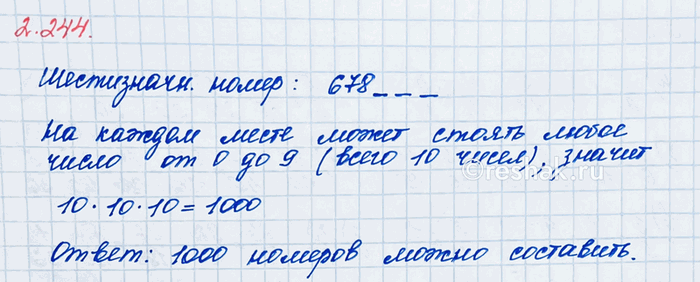 2.244.
Шестизначн. номер: 678_ _ _
На каждом месте может стоять любое
число от 0 до 9 (всего 10 чисел), значит
reshak.ru
10 · 10 · 10 = 1000
Ответ: 1000 номеров можно составить.